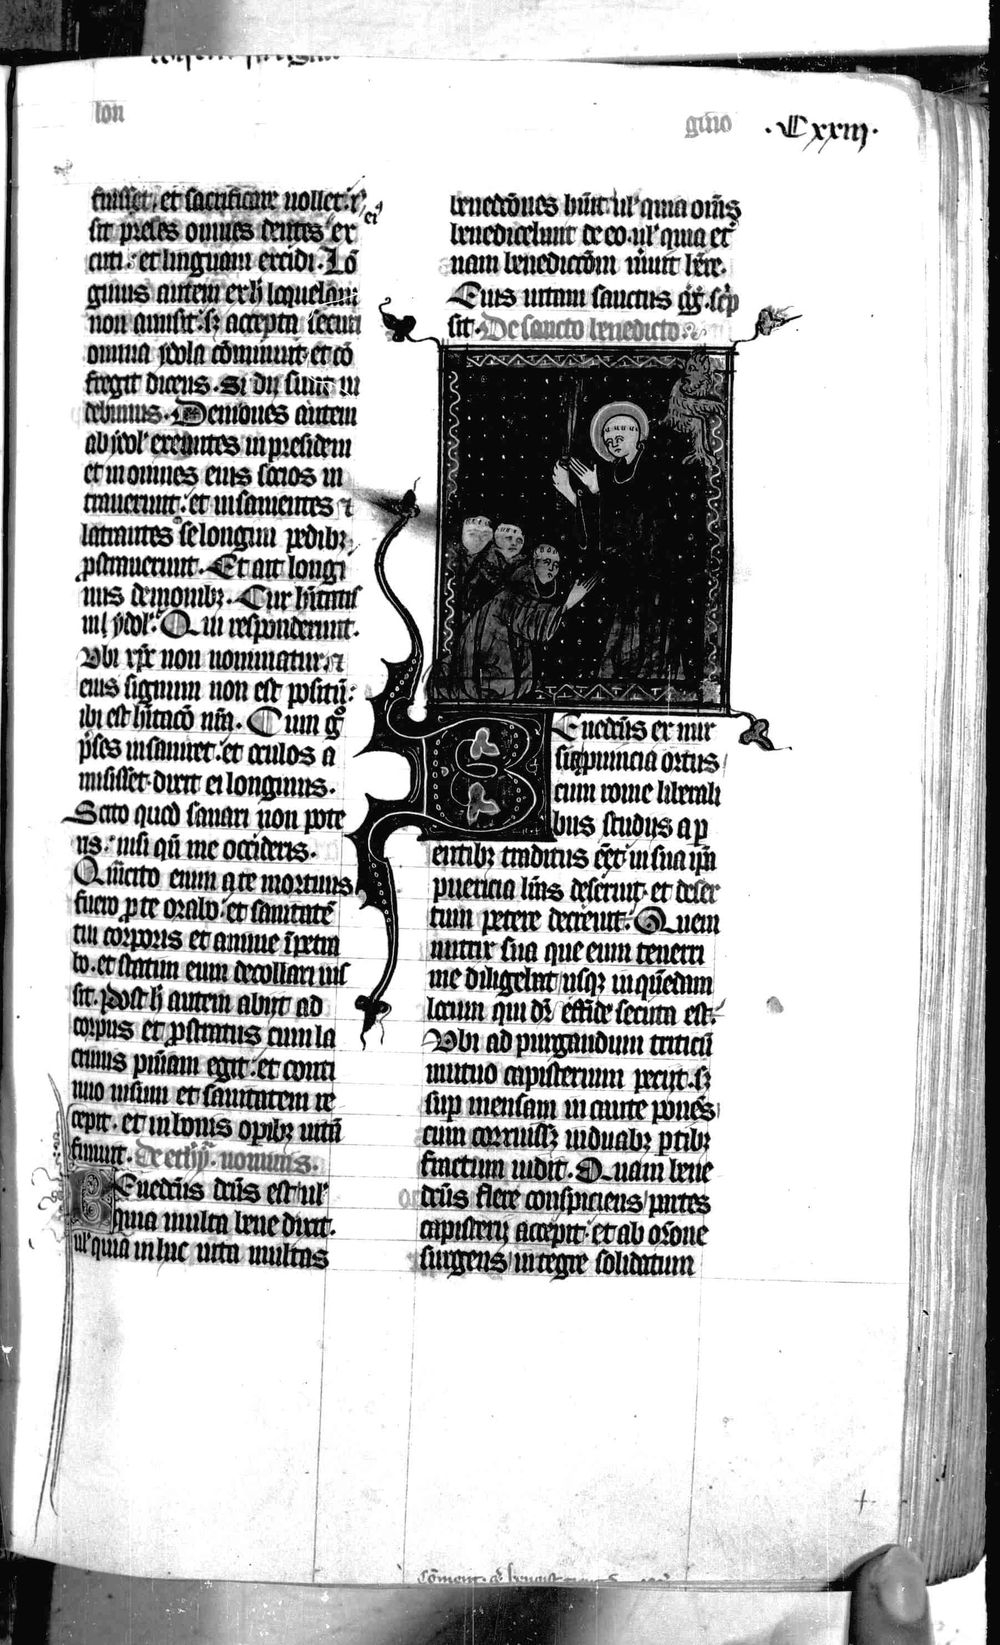 lon
gino .Cxxiii.
fuisset. et sacrificare nollet. i
sit preses omnes dentes eiꝰ ex
cuti. et linguam excidi. Lō
ginus autem ex ħ loquelam
non amisit. sꝫ accepta securi
omnia ydola cōminuit. et cō
fregit dicens. Si dij sunt ui
debimus. Demones autem
ab ydol' exeuntes in presidem
et in omnes eius socios in
trauerunt. et insanientes ⁊
latrantes se longini pedibꝫ
ꝓstrauerunt. Et ait longi
nus demonibꝫ. Cur hītatis
in ydol'. Qui responderunt.
Vbi xp̄c non nominatur ⁊
eius signum non est positū:
ibi est hītacō nr̄a. Cum gͦ
p̄ses insaniret. et oculos a
misisset. dixit ei longinus.
Scito quod sanari non pote
ris. nisi qn̄ me occideris.
Qm̄cito enim a te mortuus
fuero ꝑ te orabo. et sanitatē
tui corporis et anime īpetra
bo. et statim eum decollari ius
sit. Post ħ autem abijt ad
corpus et ꝓstratus cum la
crimis pn̄iam egit. et conti
nuo uisum et sanitatem re
cepit. et in bonis opibꝫ uitā
finiuit. De ethy. nominis.
Benedc̄us dc̄us est ul'
quia multa bene dixit.
ul' quia in hac uita multas
benedcōnes hūit ul' quia om̄s
benedicebant de eo. ul' quia et'
nam benedictōm m'uit hr̄e.
Eius uitam sanctus gͣg. sc'p
sit. De sancto benedicto.
Benedc̄us ex nur
sia ꝓuincia ortus
cum rome liberali
bus studijs a p
entibꝫ traditus ēet. in sua ip̄a
puericia lr̄as deseruit. et deser
tum petere decreuit. Quem
nutrix sua que eum teneri
me diligebat usqꝫ in quēdam
locum qui dr̄ effide secuta est.
Vbi ad purgandum triticū
mutuo capisterium petijt. sꝫ
sup mensam incaute ponēs
cum corruissꝫ in duabꝫ ptibꝫ
fractum uidit. Quam bene
dc̄us flere conspiciens partes
capisterij accepit. et ab orōne
surgens integre solidatum